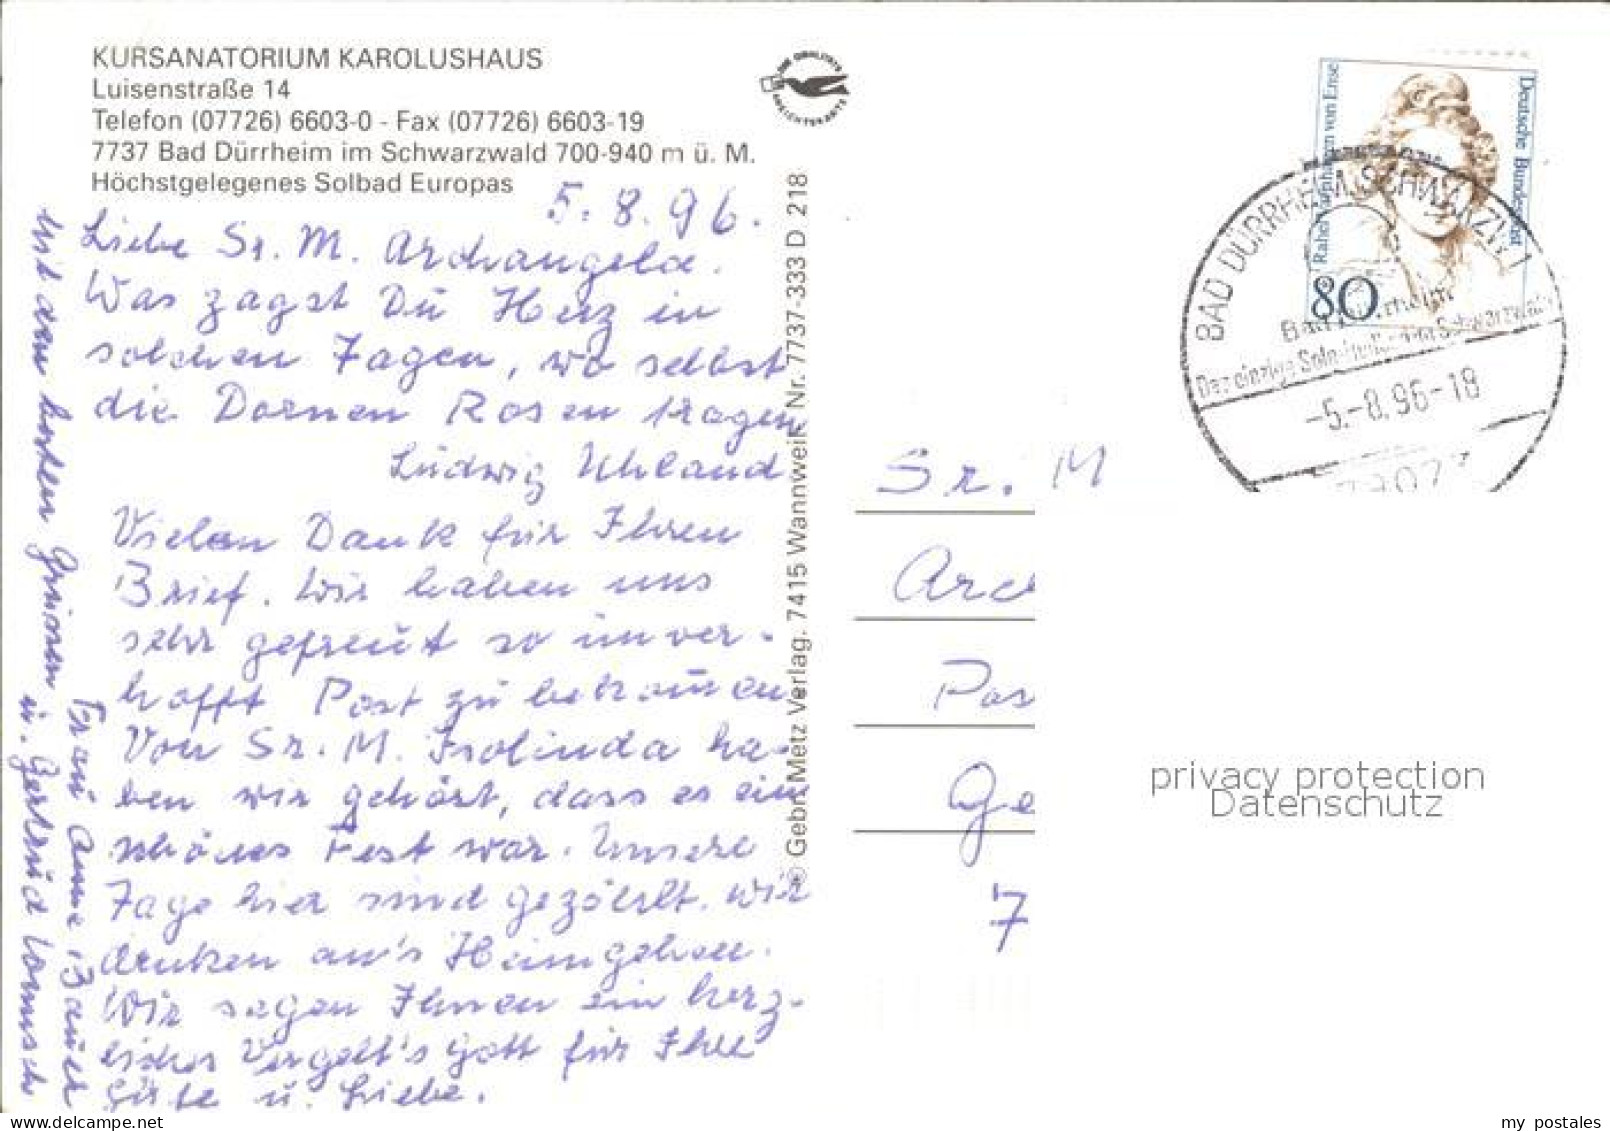 KURSANATORIUM KAROLUSHAUS
Luisenstraße 14
Telefon (07726) 6603-0 - Fax (07726) 6603-19
7737 Bad Dürrheim im Schwarzwald 700-940 m ü. M.
Höchstgelegenes Solbad Europas
5.8.96.
Liebe Sr. M. Archangela.
Was zagst Du Herz in
solchen Tagen, wo selbst
die Dornen Rosen tragen
Ludwig Uhland
Vielen Dank für Ihren
Brief. Wir haben uns
sehr gefreut so unver-
hofft Post zu bekommen
Von Sr. M. Isolinda ha-
ben wir gehört, dass es ein
schönes Fest war. Unsere
Tage hier sind gezählt. Wir
denken an's Heimgehen.
Wir sagen Ihnen ein herz-
liches Vergelt's Gott für Ihre
Güte u. Liebe.
Mit den besten Grüssen
Frau Anna Bauer
u. Gertrud
© Gebr. Metz Verlag, 7415 Wannweil, Nr. 7737-333 D 218
DIE QUALITÄTS
ANSICHTSKARTE
Rahel Varnhagen von Ense
Deutsche Bundespost
80
BAD DÜRRHEIM, SCHWARZW 1
Bad Dürrheim
-5.-8.96-18
Sr. M
Arc
Pos
Ge
7
privacy protection
Datenschutz
my postales